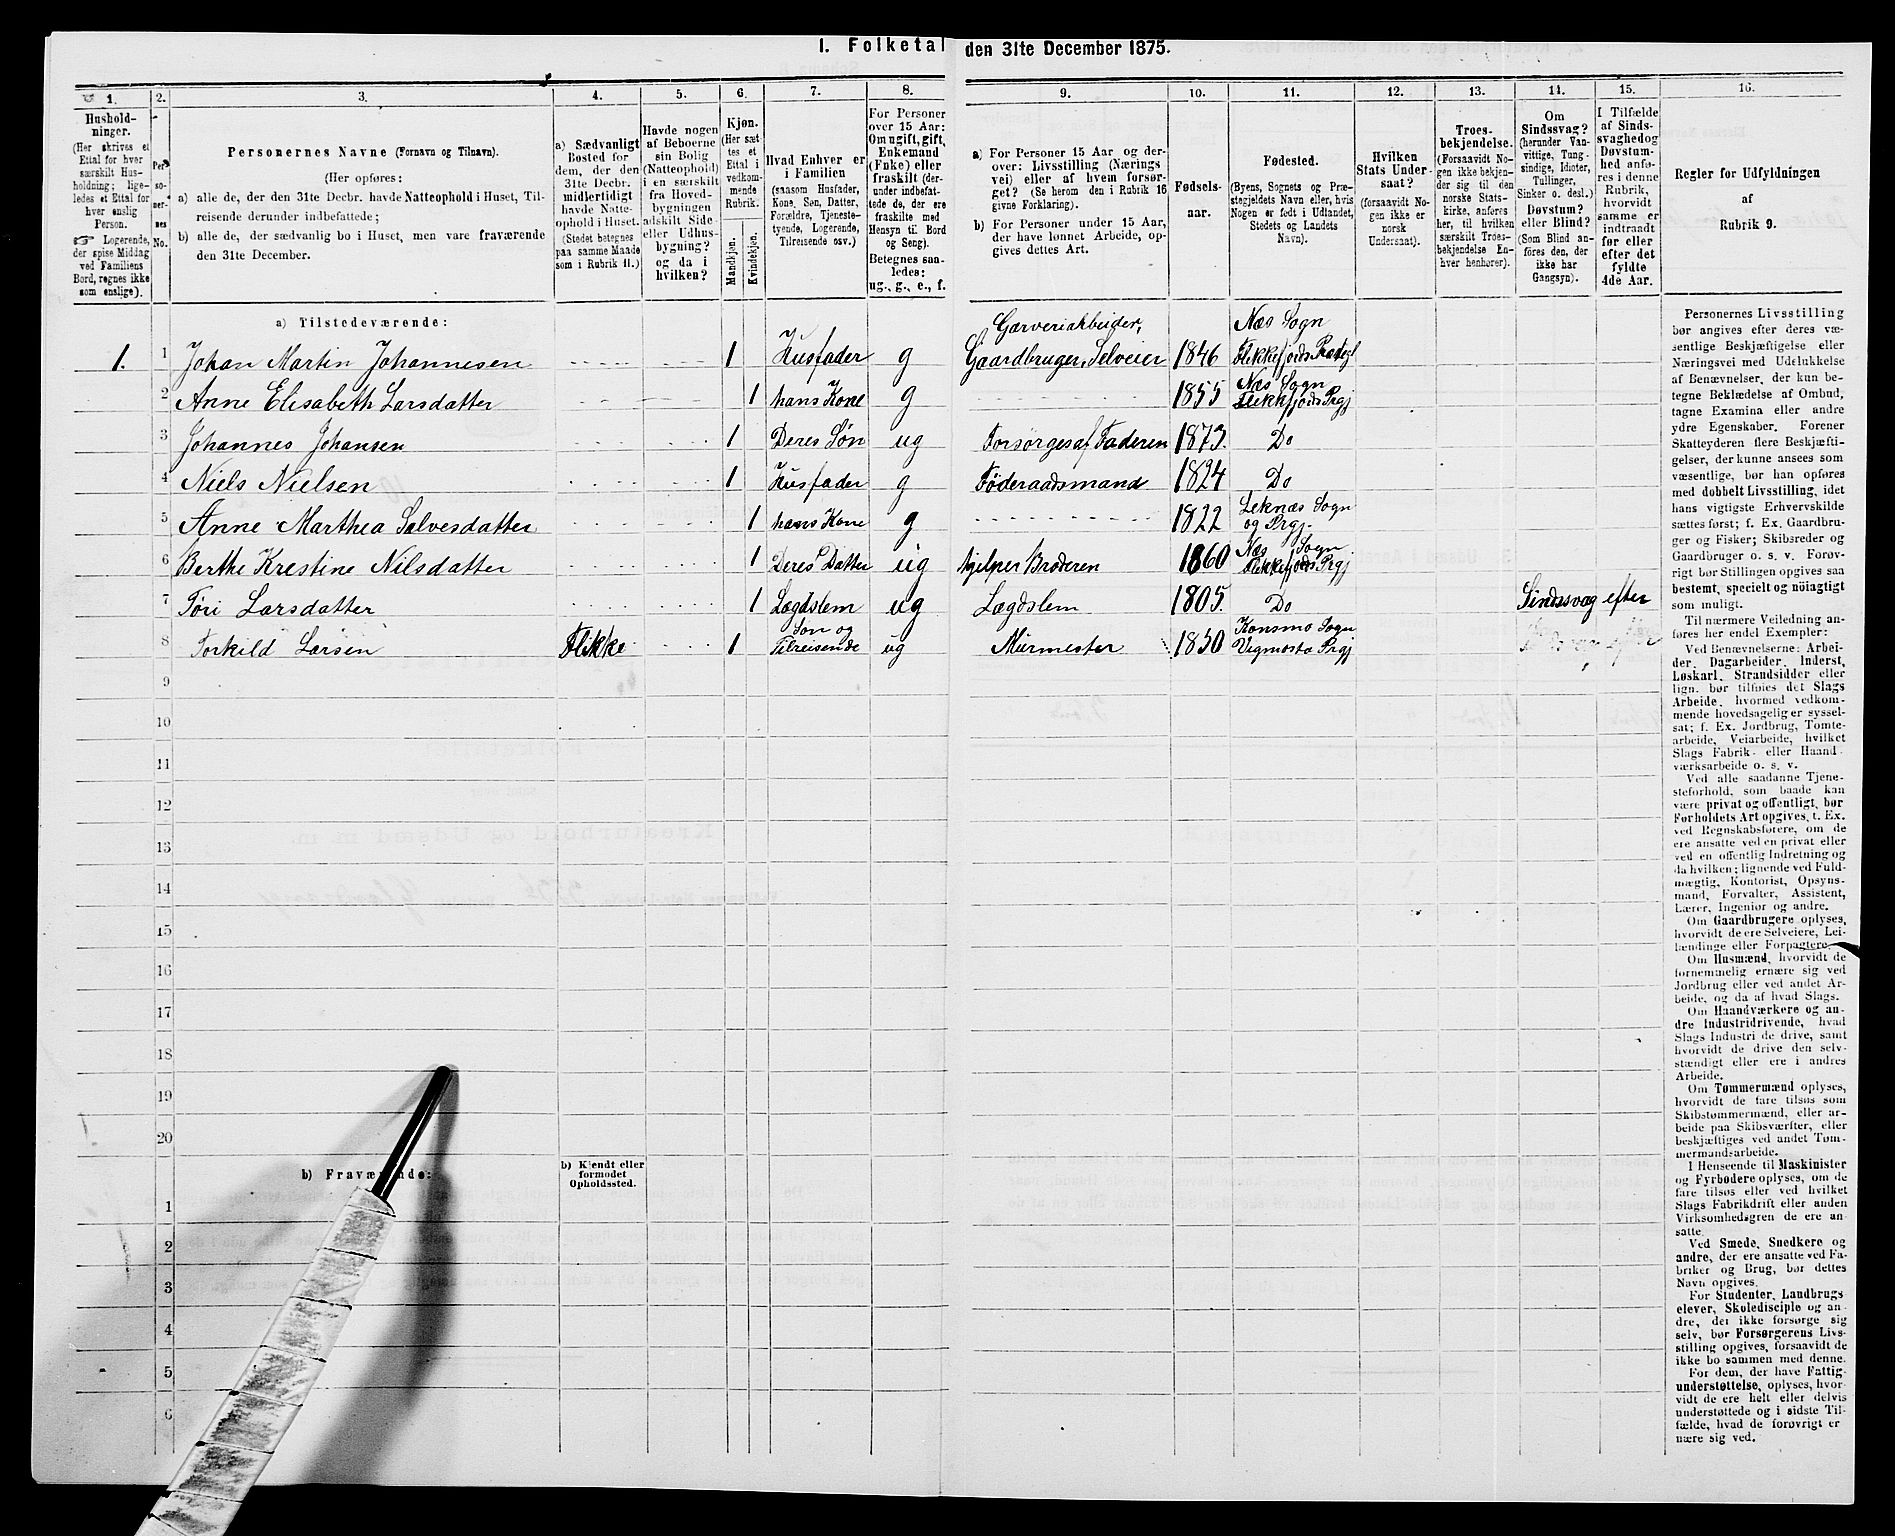 1. Folketal den 31te December 1875.
1.
Hushold-
ninger.
(Her skrives et
Ettal for hver
særskilt Hus-
holdning; lige-
ledes et Ettal for
hver enslig
Person.
☞ Logerende,
der spise Middag
ved Familiens
Bord, regnes ikke
som enslige).
2.
Per-
so-
ner-
nes
No.
3.
Personernes Navne (Fornavn og Tilnavn).
(Her opføres:
a) alle de, der den 31te Decbr. havde Natteophold i Huset, Til-
reisende derunder indbefattede;
b) alle de, der sædvanlig bo i Huset, men vare fraværende
den 31te December.
4.
a) Sædvanligt
Bosted for
dem, der den
31te Decbr.
midlertidigt
havde Natte-
ophold i Huset.
(Stedet betegnes
paa samme Maade
som i Rubrik 11.)
5.
Havde nogen
af Beboerne
sin Bolig
(Natteophold)
i en særskilt
fra Hoved-
bygningen
adskilt Side-
eller Udhus-
bygning?
og da i
hvilken?
6.
Kjøn.
(Her sæt-
tes et
Ettal i
vedkom-
mende
Rubrik.
Mandkjøn.
Kvindekjøn.
7.
Hvad Enhver er
i Familien
(saasom Husfader,
Kone, Søn, Datter,
Forældre, Tjeneste-
tyende, Logerende,
Tilreisende osv.)
8.
For Personer
over 15 Aar:
Om ugift, gift,
Enkemand
(Enke) eller
fraskilt (der-
under indbefat-
tede de, der ere
fraskilte med
Hensyn til Bord
og Seng).
Betegnes saa-
ledes:
ug., g., e., f.
9.
a) For Personer 15 Aar og der-
over: Livsstilling (Nærings
vei) eller af hvem forsør-
get? (Se herom den i Rubrik 16
givne Forklaring).
b) For Personer under 15 Aar,
der have lønnet Arbeide, op-
gives dettes Art.
10.
Fødsels-
aar.
11.
Fødested.
(Byens, Sognets og Præ-
stegjeldets Navn eller, hvis
Nogen er født i Udlandet,
Stedets og Landets
Navn).
12.
Hvilken
Stats Under-
saat?
(forsaavidt No-
gen ikke er
norsk
Undersaat).
13.
Troes-
bekjendelse.
(Forsaavidt No-
gen ikke bekjen-
der sig til den
norske Stats-
kirke, anføres
her, til hvilken
særskilt Troes-
bekjendelse En-
hver henhører).
14.
Om
Sindssvag?
(herunder Van-
vittige, Tung-
sindige, Idioter,
Tullinger,
Sinker o. desl.)
Døvstum?
eller Blind?
(Som Blind an-
føres den, der
ikke har
Gangsyn).
15.
I Tilfælde
af Sinds-
svaghed og
Døvstum-
hed anfø-
res i denne
Rubrik,
hvorvidt
samme er
indtraadt
før eller
efter det
fyldte
4de Aar.
16.
Regler for Udfyldningen
af
Rubrik 9.
a) Tilstedeværende:
Garveriarbeider, Næs Sogn
1. 1 Johan Martin Johannesen 1 Husfader g Gaardbruger, Selveier 1846 Flikkefjords Prstgl
Næs Sogn
2 Anne Elisabeth Larsdatter 1 hans Kone g 1855 Flekkefjords Prgj
3 Johannes Johansen 1 Deres Søn ug Forsørges af Faderen 1873. Do
4 Niels Nielsen 1 Husfader g Føderaadsmand 1824 Do
5 Anne Marthea Salvesdatter 1 hans Kone g 1822 Leknæs Sogn
og Prgj.
Næs Sogn
6 Berthe Krestine Nilsdatter 1 Deres Datter ug hjelper Broderen 1860 Flekkefjords Prgj
7 Tøri Larsdatter 1 Lægdslem ug Lægdslem 1805. Do Sindssvag efter
Søn og Konsmo Sogn
8 Torkild Larsen Flikke 1 Tilreisende ug Murmester 1850 Vigmosta Prgj
9
10
11
12
13
14
15
16
17
18
19
20
b) Fraværende:
b) Kjendt eller
formodet
Opholdssted.
1
2
3
4
5
6
Personernes Livsstilling
bør angives efter deres væ-
sentlige Beskjæftigelse eller
Næringsvei med Udelukkelse
af Benævnelser, der kun be-
tegne Beklædelse af Ombud,
tagne Examina eller andre
ydre Egenskaber. Forener
Skatteyderen flere Beskjæfti-
gelser, der kunne ansees som
væsentlige, bør han opføres
med dobbelt Livsstilling, idet
hans vigtigste Erhvervskilde
sættes først; f. Ex. Gaardbru-
ger og Fisker; Skibsreder og
Gaardbruger o. s. v. Forøv-
rigt bør Stillingen opgives saa
bestemt, specielt og nöiagtigt
som muligt.
Til nærmere Veiledning an-
føres her endel Exempler:
Ved Benævnelserne: Arbei-
der, Dagarbeider, Inderst,
Løskarl, Strandsidder eller
lign. bør tilføies det Slags
Arbeide, hvormed vedkom-
mende hovedsagelig er syssel-
sat; f. Ex. Jordbrug, Tomte-
arbeide, Veiarbeide, hvilket
Slags Fabrik- eller Haand-
værksarbeide o. s. v.
Ved alle saadanne Tjene-
steforhold, som baade kan
være privat og offentligt, bør
Forholdets Art opgives, t. Ex.
ved Regnskabsførere, om de
ere ansatte ved en privat eller
ved en offentlig Indretning og
da hvilken; lignende ved Fuld-
mægtig, Kontorist, Opsyns-
mand, Forvalter, Assistent,
Lærer, Ingeniør og andre.
Om Gaardbrugere oplyses,
hvorvidt de ere Selveiere, Lei-
lændinge eller Forpagtere.
Om Husmænd, hvorvidt de
fornemmelig ernære sig ved
Jordbrug eller ved andet Ar-
beide, og da af hvad Slags.
Om Haandværkere og an-
dre Industridrivende, hvad
Slags Industri de drive, samt
hvorvidt de drive den selv-
stændigt eller ere i andres
Arbeide.
Om Tømmermænd oplyses,
hvorvidt de fare tilsøs som
Skibstømmermænd, eller ar-
beide paa Skibsværfter, eller
beskjæftiges ved andet Tøm-
mermandsarbeide.
I Henseende til Maskinister
og Fyrbødere oplyses, om de
fare tilsøs eller ved hvilket
Slags Fabrikdrift eller anden
Virksomhedsgren de ere an-
satte.
Ved Smede, Snedkere og
andre, der ere ansatte ved Fa-
briker og Brug, bør dettes
Navn opgives.
For Studenter, Landbrugs-
elever, Skoledisciple og an-
dre, der ikke forsørge sig
selv, bør Forsørgerens Livs-
stilling opgives, forsaavidt de
ikke bo sammen med denne.
For dem, der have Fattig-
understøttelse, oplyses, hvor-
vidt de ere helt eller delvis
understøttede og i sidste Til-
fælde, hvad de forøvrigt er-
nære sig ved.